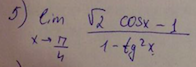 5) lim x→π/4 (√2 cosx - 1)/(1 - tg²x)